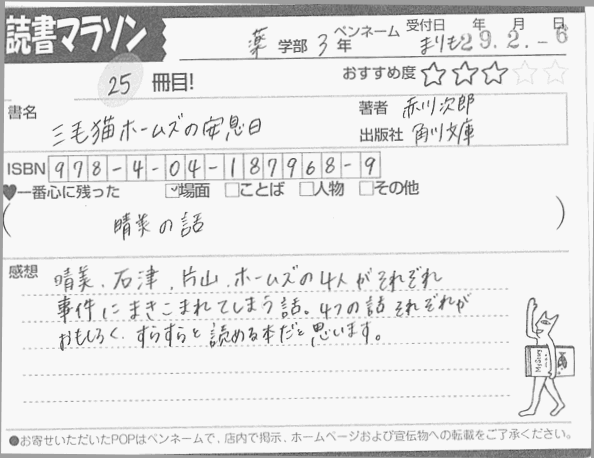 読書マラソン
薬 学部 3 年 ペンネーム まりも 受付日 年 月 日 29.2.-6
25 冊目! おすすめ度 ☆☆☆☆☆
書名 三毛猫ホームズの安息日
著者 赤川次郎
出版社 角川文庫
ISBN 978-4-04-187968-9
♥一番心に残った ☑場面 □ことば □人物 □その他
(晴美の話)
感想 晴美、石津、片山、ホームズの4人がそれぞれ
事件にまきこまれてしまう話。4つの話それぞれが
おもしろく、すらすらと読める本だと思います。
●お寄せいただいたPOPはペンネームで、店内で掲示、ホームページおよび宣伝物への転載をご了承ください。